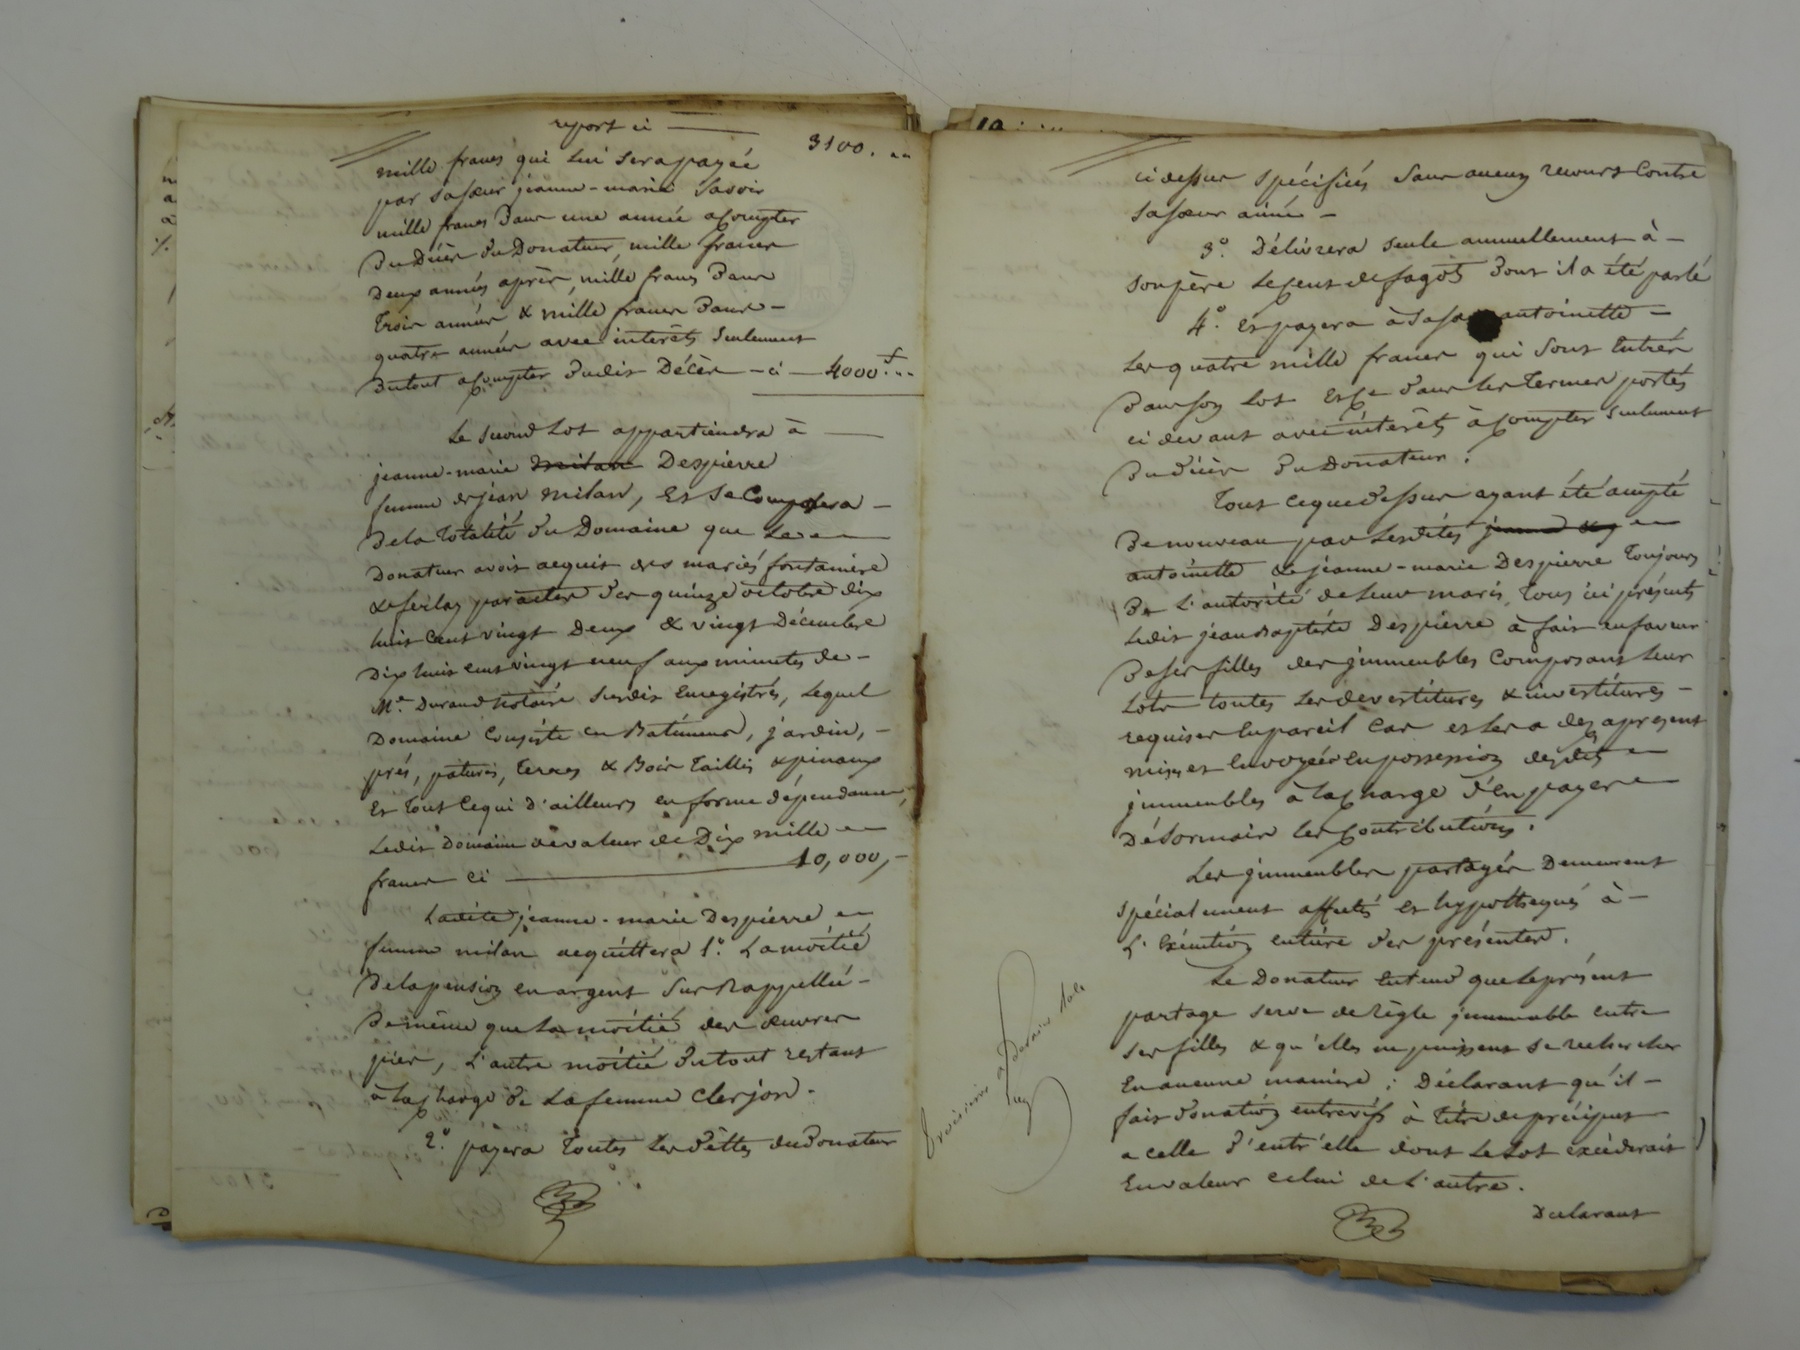 report ci — 3100. "
mille francs qui lui sera payée
par sa sœur jeanne-marie Savoir
mille francs Dans une année acompter
Du Décès Du Donateur, mille francs
Deux années après, mille francs Dans
Trois années & mille francs Dans –
quatre années avec intérêts Seulement
Du tout acompter Dudit Décès – ci – 4000 f "
Le second Lot appartiendra à —
jeanne-marie milan Despierre
femme de jean milan, Et Se Composera –
De la Totalité Du Domaine que Le
Donateur avoit acquis des mariés fontanière
& par actes Des quinze octobre dix
huit Cent vingt Deux & vingt Décembre
Dix huit cent vingt neuf aux minutes de –
Me. Durand Notaire Susdit Enregistrés, Lequel
Domaine Consiste en Batiments, jardin, –
prés, patures, Terres & Bois Taillis & pinaux
Et Tout Ce qui d'ailleurs en forme dépendances,
Ledit Domaine de valeur de Dix mille
francs ci — 10,000, –
Ladite jeanne-marie Despierre
femme milan acquittera 1°. La moitié
De la pension en argent Sus Rappellée –
De même que la moitié des œuvres
pies, L'autre moitié Du tout restant
à la charge De La femme Clerjon. –
2°. payera Toutes Les Dettes du Donateur
ci dessus Spécifiées Sans aucun recours Contre
Sa sœur ainée –
3°. Délivrera seule annuellement à –
Son père Le cent de fagots Dont il a été parlé
4°. Et payera à Sa antoinette –
Les quatre mille francs qui Sont Entrés
Dans Son Lot Et Ce Dans Les Termes portés
ci devant avec intérêts à Compter Seulement
Du Décès Du Donateur.
Tout Ce que Dessus ayant été accepté
De nouveau par Lesdites
antoinette & jeanne-marie Despierre Toujours
De L'autorité de Leurs maris, Tous ici présents
Ledit jean Baptiste Despierre à fait en faveur
De Ses filles des jmmeubles Composant Leurs
Lots toutes Les devestitures & investitures –
requises En pareil Cas et Les a dès apresent
mises et Envoyées En possession desdits
jmmeubles à la Charge D'En payer
Désormais Les Contributions.
Les jmmeubles partagés Demeurent
Spécialement affectés et hypothéqués à –
L'Exécution entière Des présentes.
Le Donateur Entend que Le présent
partage serve de règle jmmuable entre
Ses filles & qu'elles ne puissent Se rechercher
En aucune manière ; Déclarant qu'il –
fait Donation entrevifs à Titre de préciput
a celle D'entr'elle dont Le Lot excéderait
En valeur celui de L'autre.
Declarant